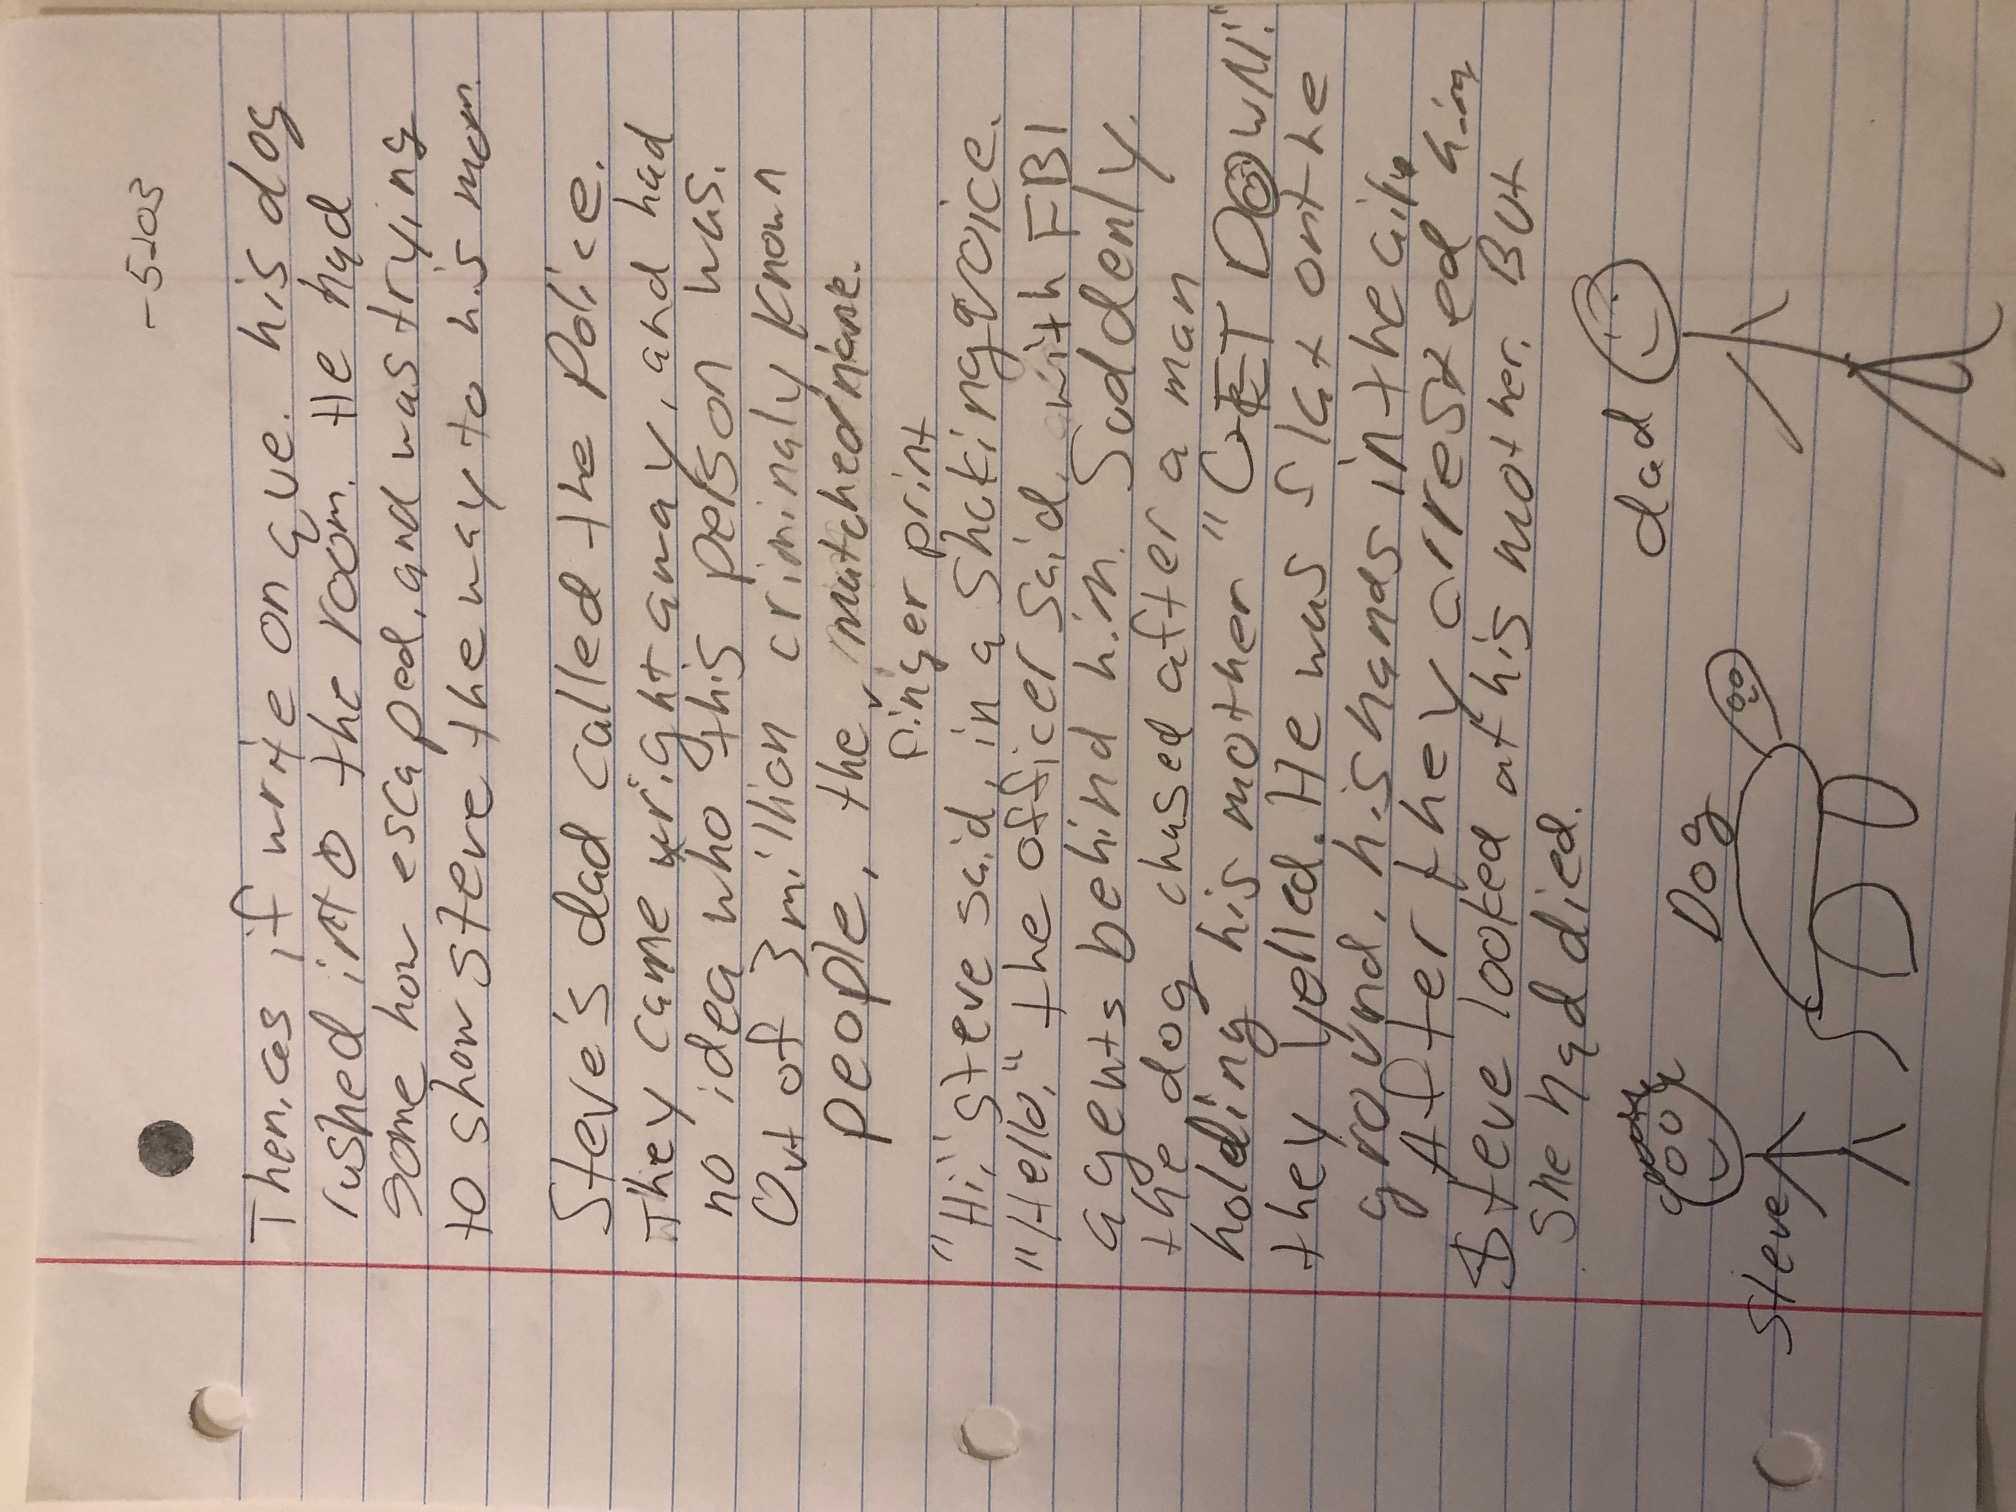 -5203
Then, as if write on que. his dog
rushed into the room. He had
some how escaped, and was trying
to show steve the way to his mom.
Steve's dad called the Police.
They came right away, and had
no idea who this person was.
Out of 3 million criminaly known
people, the matched name.
finger print
"Hi," steve said, in a shaking voice.
"Hello," the officer said, with FBI
agents behind him. Suddenly,
the dog chased after a man
holding his mother "GET DOWN!"
they yelled. He was flat on the
ground, his hands in the air.
After they arrested him
Steve looked at his mother. But
she had died.
dad
Dog
Steve